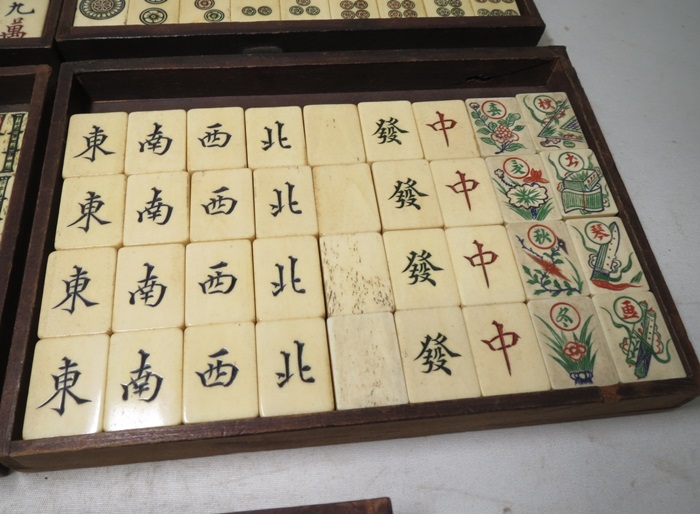 九
萬
東 南 西 北 發 中 春
東 南 西 北 發 中
東 南 西 北 發 中 秋 琴
東 南 西 北 發 中 冬 画